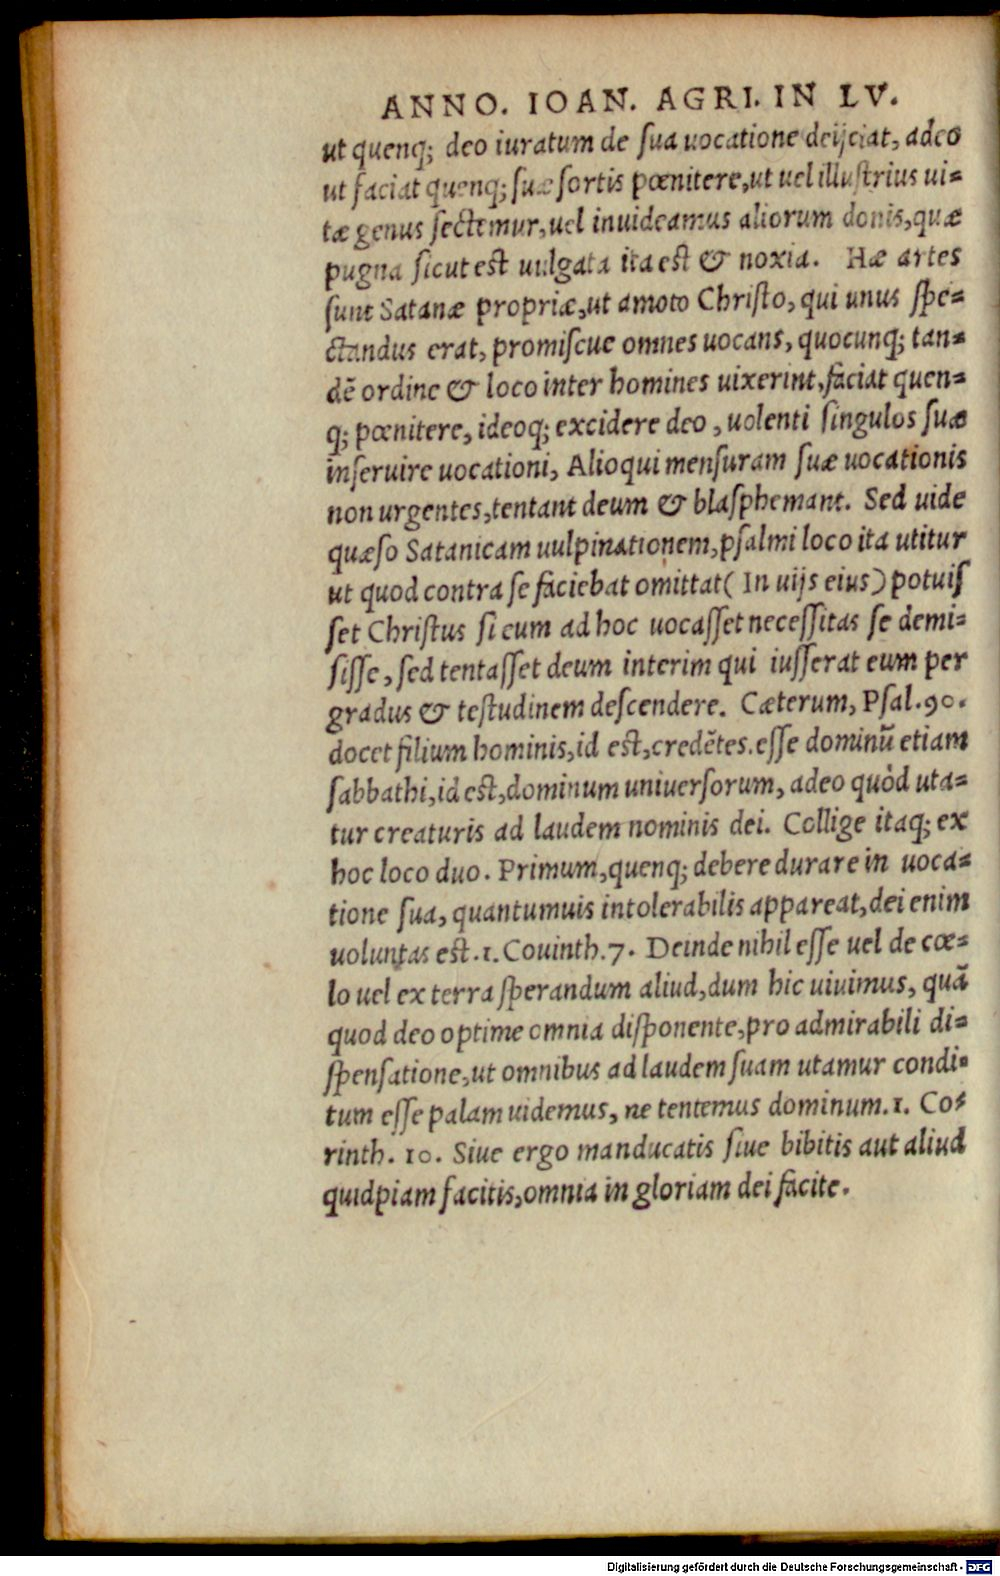 ANNO. IOAN. AGRI. IN LV.
ut quenq; deo iuratum de sua uocatione deijciat, adeo
ut faciat quenq; suæ sortis pœnitere, ut uel illustrius ui-
tæ genus sectemur, uel inuideamus aliorum donis, quæ
pugna sicut est uulgata ita est & noxia. Hæ artes
sunt Satanæ propriæ, ut amoto Christo, qui unus spe-
ctandus erat, promiscue omnes uocans, quocunq; tan-
dē ordine & loco inter homines uixerint, faciat quen-
q; pœnitere, ideoq; excidere deo, uolenti singulos suæ
inseruire uocationi, Alioqui mensuram suæ uocationis
non urgentes, tentant deum & blasphemant. Sed uide
quæso Satanicam uulpinationem, psalmi loco ita utitur
ut quod contra se faciebat omittat (In uijs eius) potuis
set Christus si eum ad hoc uocasset necessitas se demi-
sisse, sed tentasset deum interim qui iusserat eum per
gradus & testudinem descendere. Cæterum, Psal. 90.
docet filium hominis, id est, credētes. esse dominū etiam
sabbathi, id est, dominum uniuersorum, adeo quòd uta-
tur creaturis ad laudem nominis dei. Collige itaq; ex
hoc loco duo. Primum, quenq; debere durare in uoca-
tione sua, quantumuis intolerabilis appareat, dei enim
uoluntas est. 1. Couinth. 7. Deinde nihil esse uel de cœ-
lo uel ex terra sperandum aliud, dum hic uiuimus, quā
quod deo optime omnia disponente, pro admirabili di-
spensatione, ut omnibus ad laudem suam utamur condi-
tum esse palam uidemus, ne tentemus dominum. 1. Co-
rinth. 10. Siue ergo manducatis siue bibitis aut aliud
quidpiam facitis, omnia in gloriam dei facite.
Digitalisierung gefördert durch die Deutsche Forschungsgemeinschaft - DFG